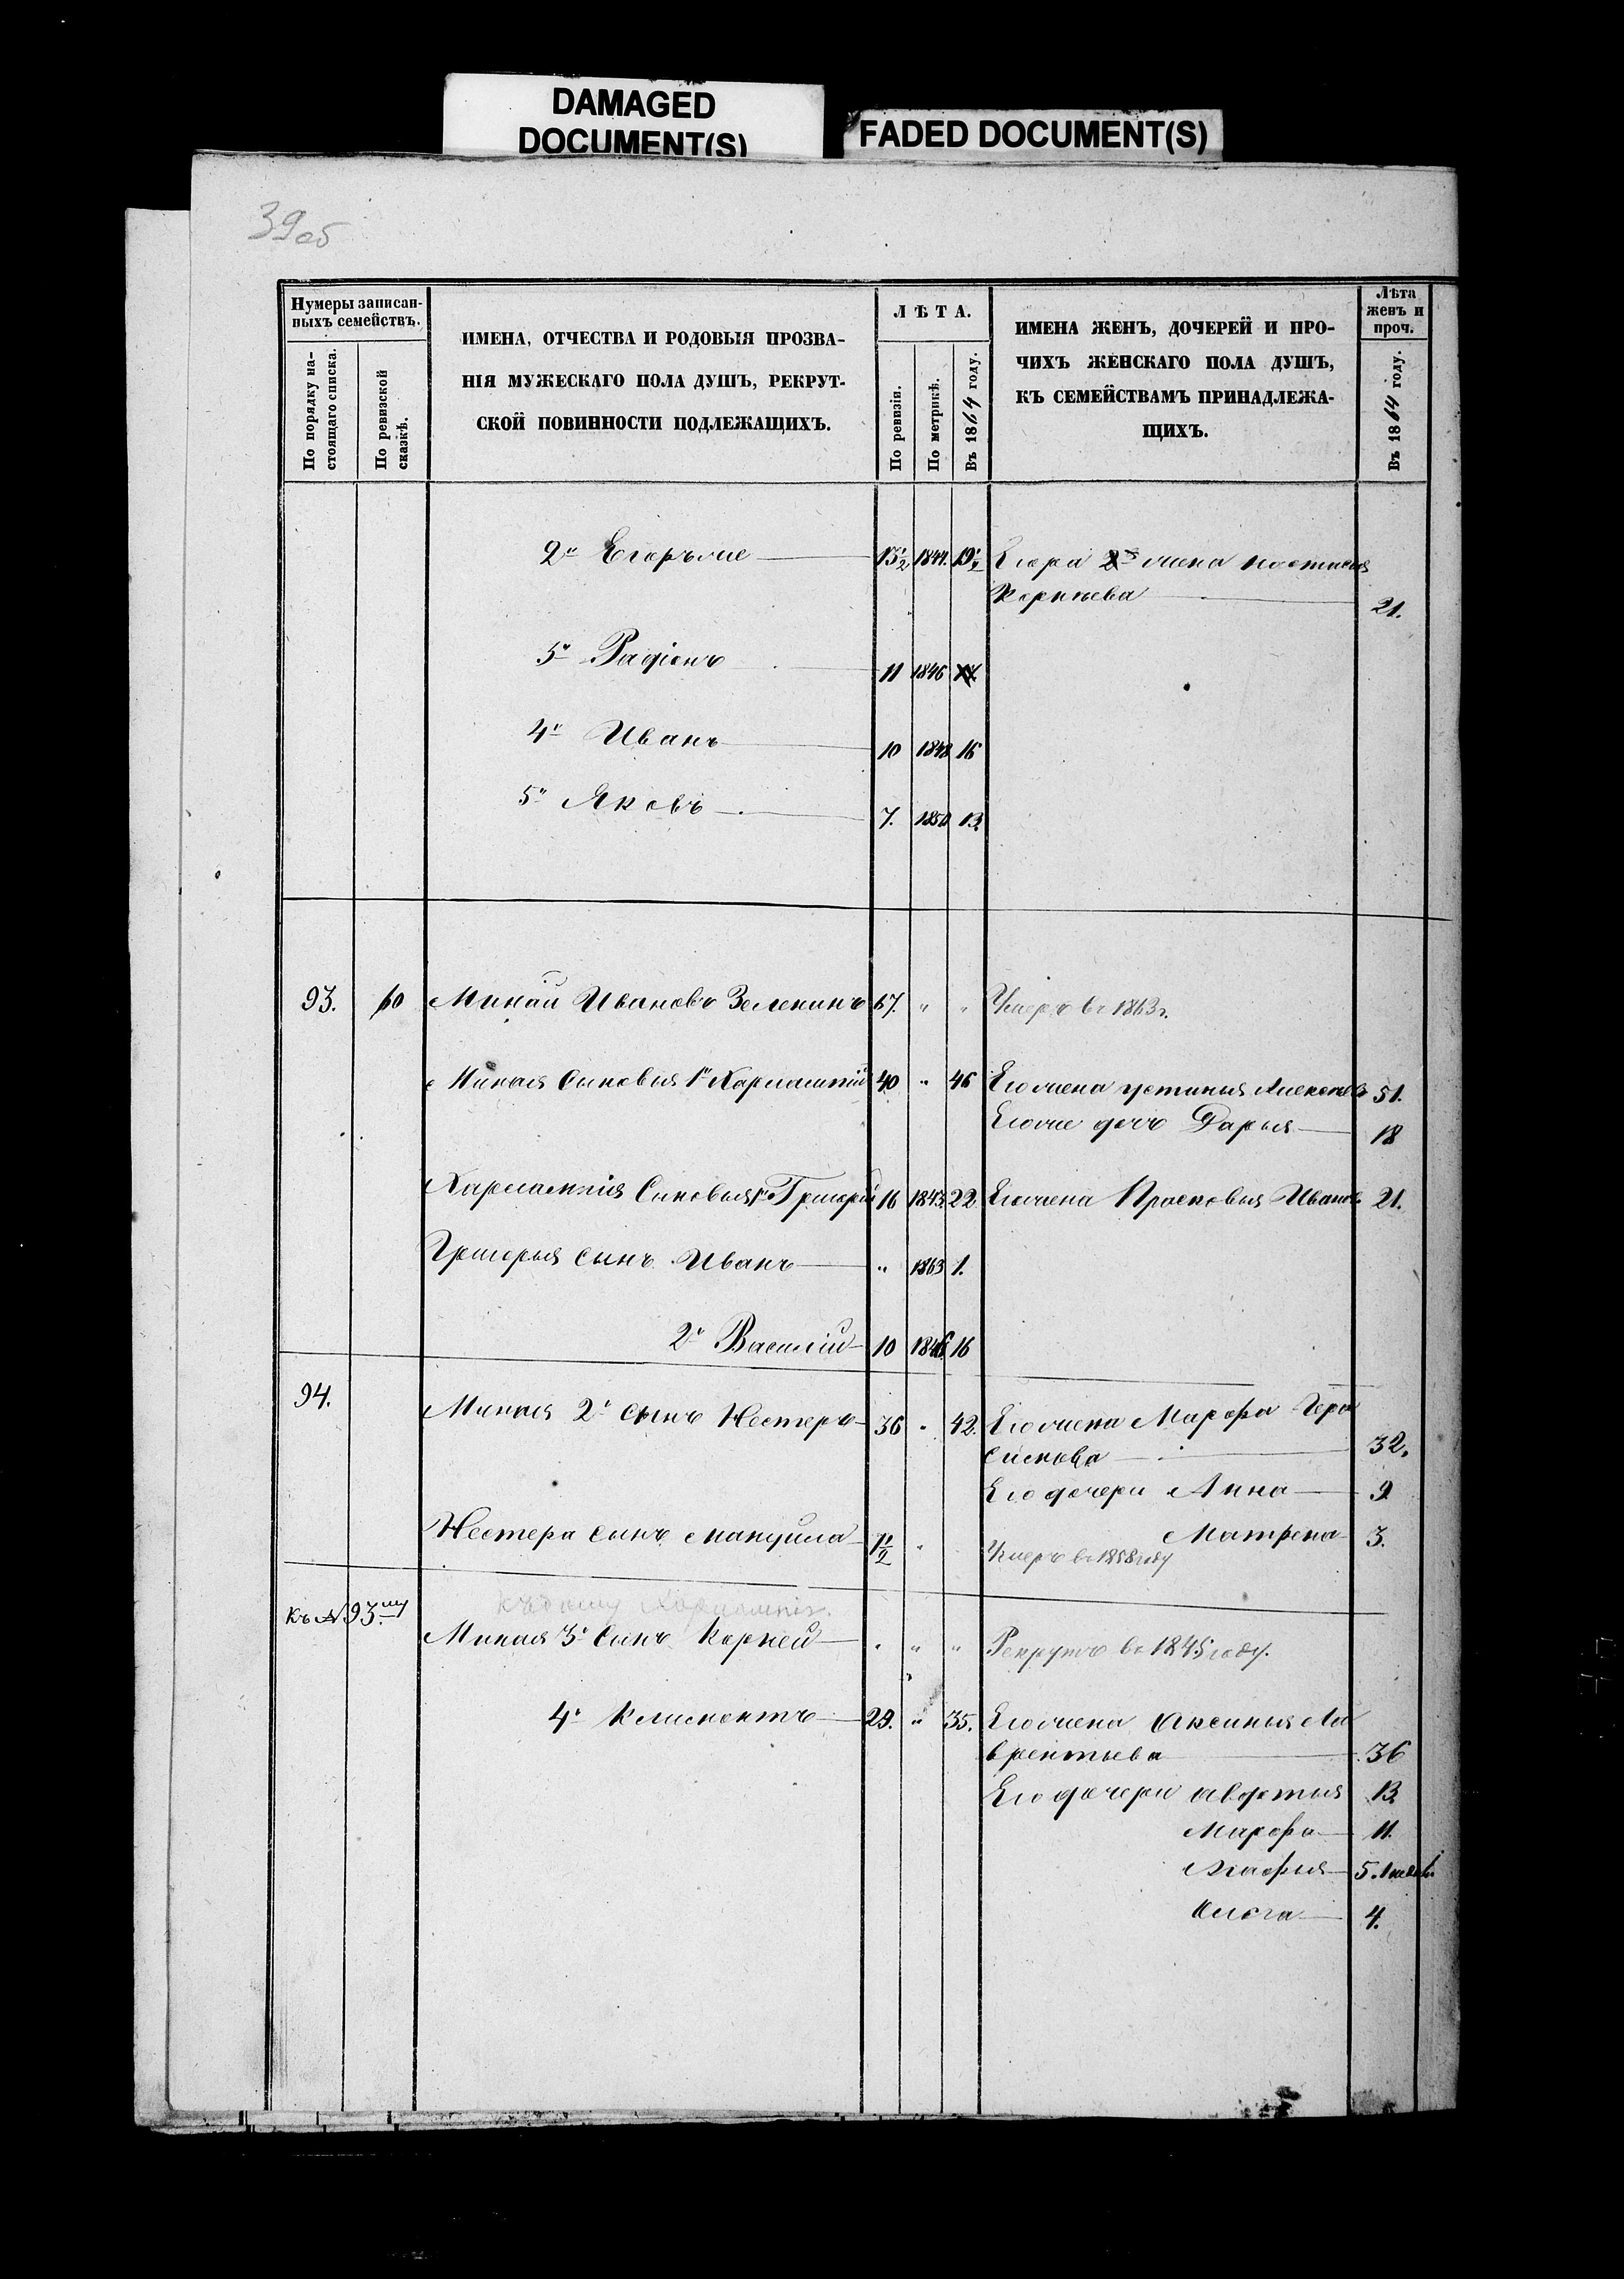 DAMAGED
DOCUMENT(S)
FADED DOCUMENT(S)
39об
Нумеры записан-
ныхъ семействъ.
По порядку на-
стоящаго списка.
По ревизской
сказкѣ.
ИМЕНА, ОТЧЕСТВА И РОДОВЫЯ ПРОЗВА-
НІЯ МУЖЕСКАГО ПОЛА ДУШЪ, РЕКРУТ-
СКОЙ ПОВИННОСТИ ПОДЛЕЖАЩИХЪ.
ЛѢТА.
По ревизіи.
По метрикѣ.
Въ 1864 году.
ИМЕНА ЖЕНЪ, ДОЧЕРЕЙ И ПРО-
ЧИХЪ ЖЕНСКАГО ПОЛА ДУШЪ,
КЪ СЕМЕЙСТВАМЪ ПРИНАДЛЕЖА-
ЩИХЪ.
Лѣта
женъ и
проч.
Въ 1864 году.
2й 1844. Егора жена
21.
5й Радіонъ 11 1846
4й Иванъ 10 1848 16
5й Яковъ 7. 1850 13.
93. 60 Минай Ивановъ Зеленинъ 67. " " Умеръ въ 1863г.
Миная Сыновья 1й Харлампій 40 " 46 Его жена Устинья Алексѣев 51.
Его же дочь Дарья 18
Харлампія Сыновья 1й Григорій 16 1843 22 Его жена Просковья Иванов 21.
Григорья сынъ Иванъ " 1863 1.
2й Василій 10 1848 16
94. Миная 2й сынъ Нестеръ 36 " 42. Его жена Марфа Гера
симова 32.
Его дочери Анна 9
Матрена 3.
Нестера сынъ Мануила 1 1/2 " Умеръ въ 1858 году
къ № 93му къ дому Харлампія.
Миная 3й Сынъ Корней " " " Рекрутъ въ 1845 году.
4й Климонтъ 29. " 35. Его жена Аксинья Ла
врентьева 36
Его дочери Авдотья 13.
Марфа 11.
Агафья 5.
Ольга 4.